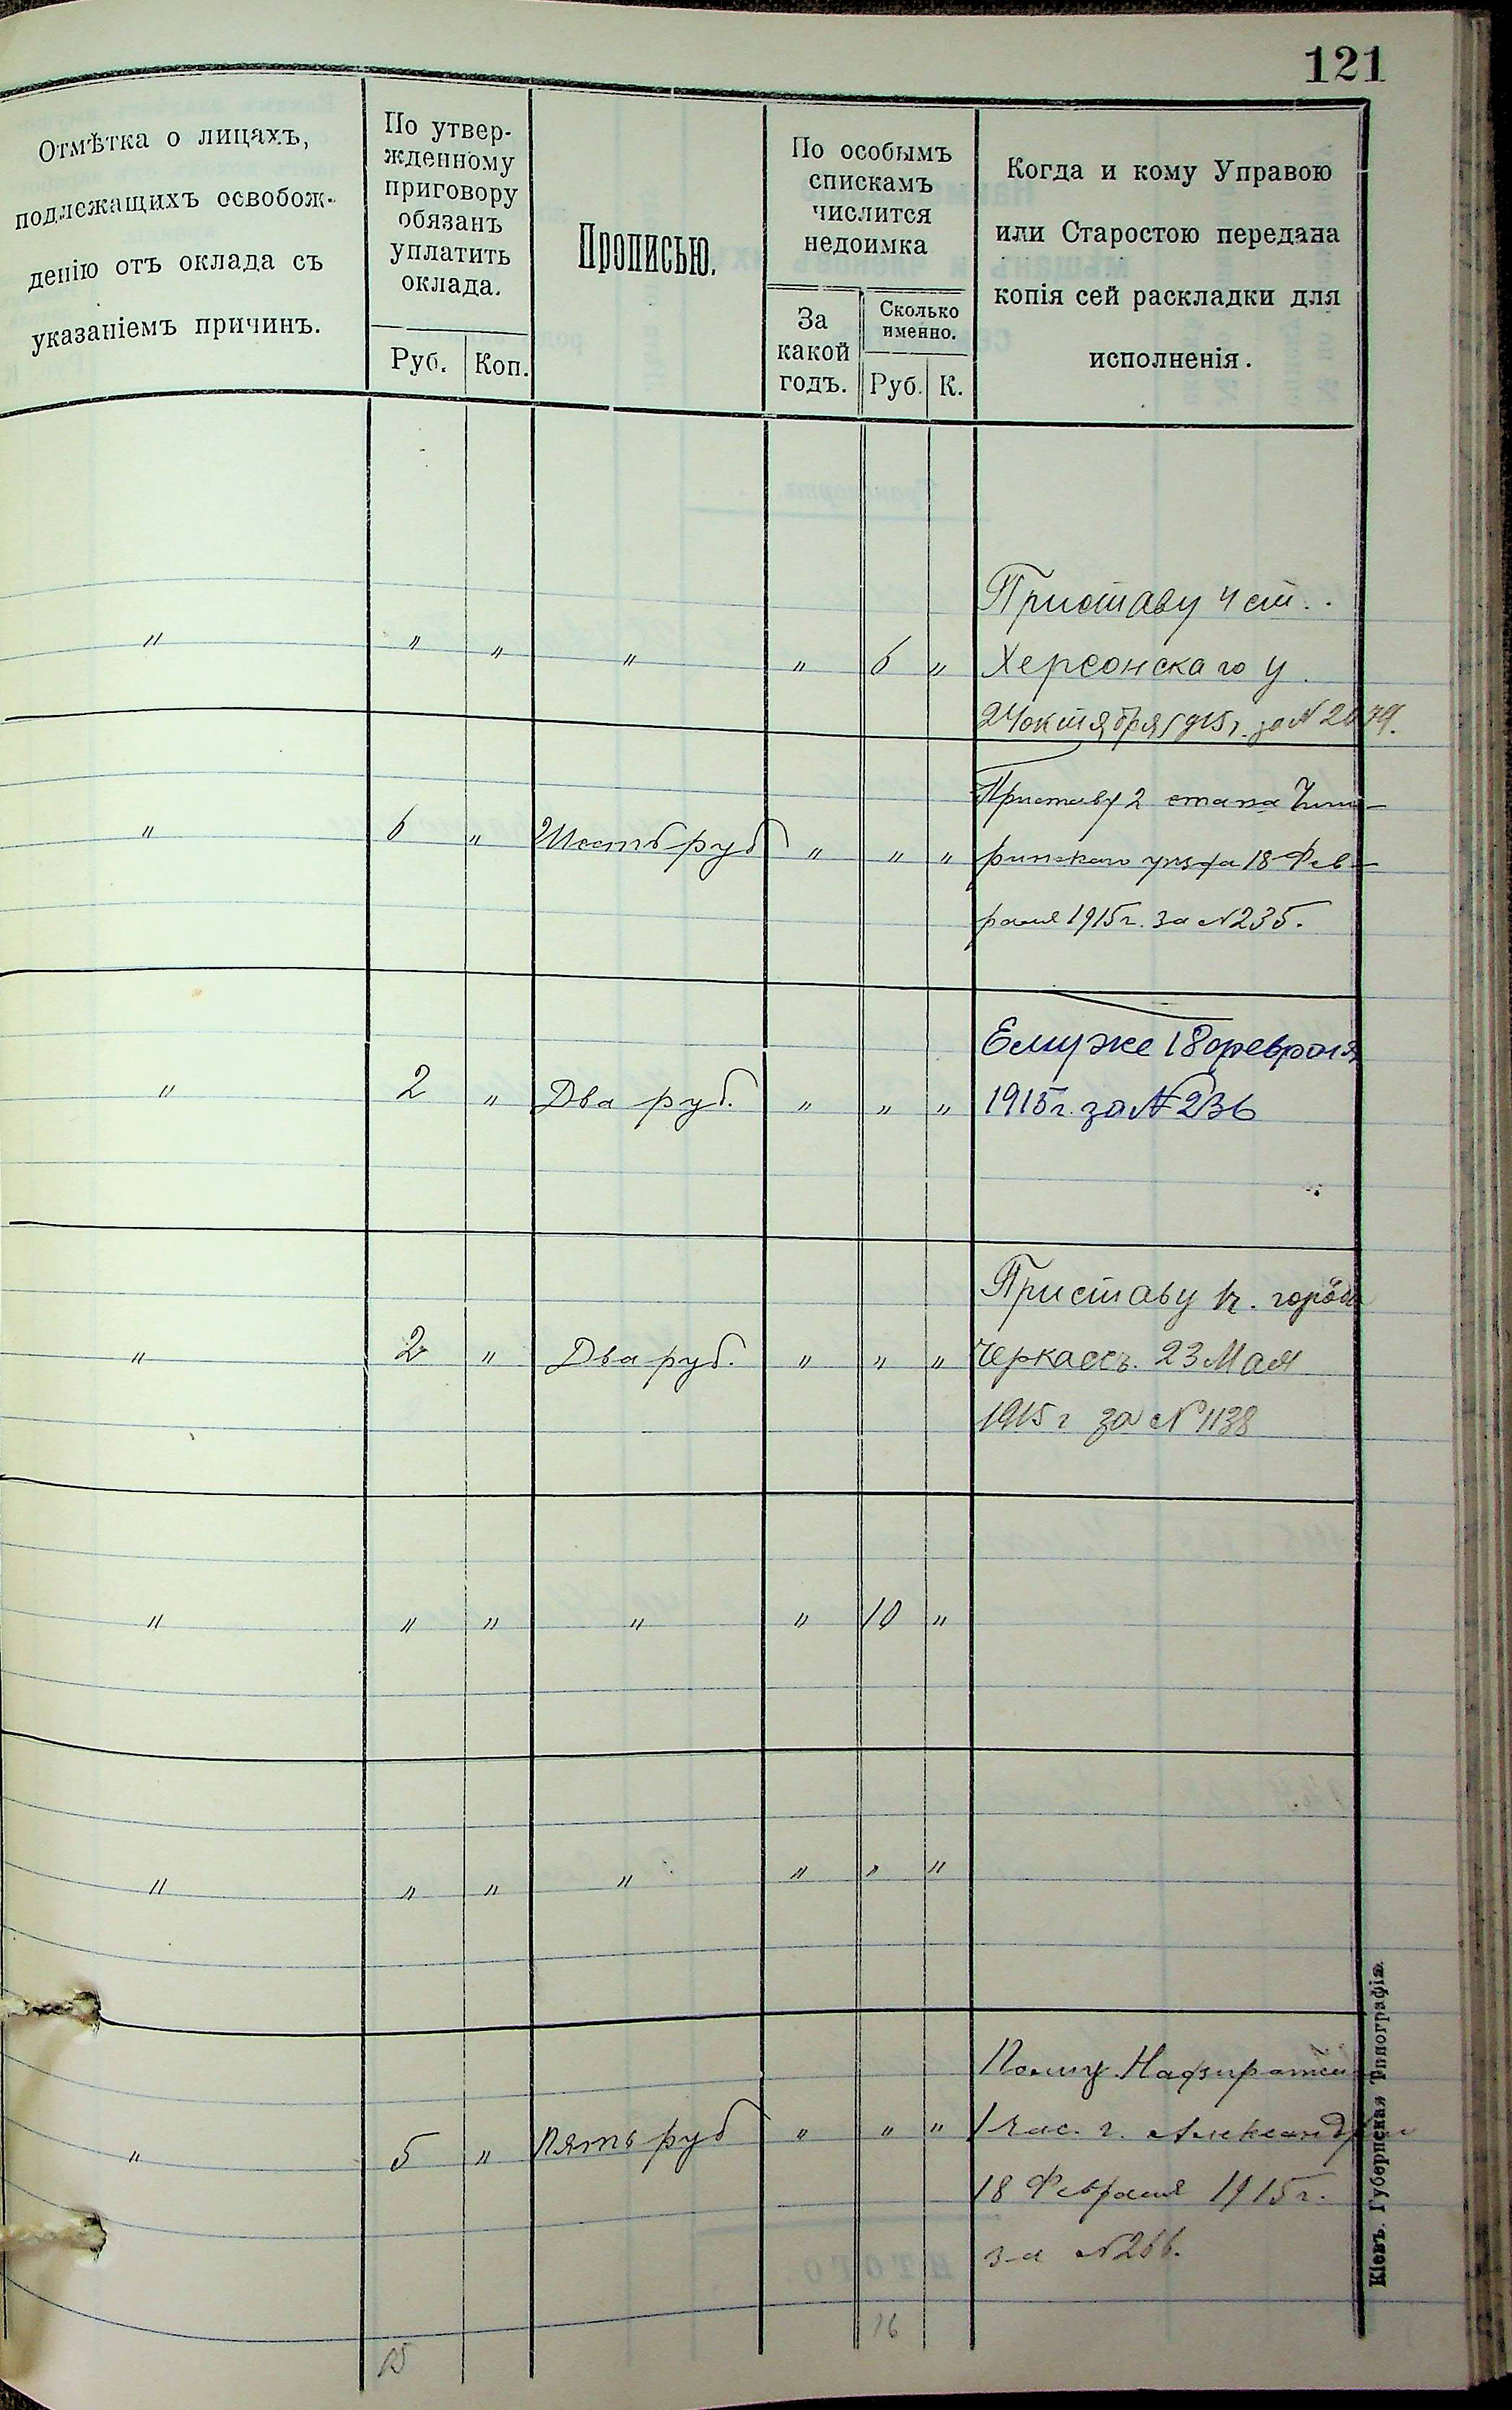 121
Отмѣтка о лицахъ,
подлежащихъ освобож-
денію отъ оклада съ
указаніемъ причинъ.
По утвер-
жденному
приговору
обязанъ
уплатить
оклада.
Руб. Коп.
Прописью.
По особымъ
спискамъ
числится
недоимка
За
какой
годъ.
Сколько
именно.
Руб. К.
Когда и кому Управою
или Старостою передана
копія сей раскладки для
исполненія.
Приставу 4 ст.
" " " " " 6 " Херсонскаго у.
24 октября 1915 г. за №
Приставу 2 стана Чиги-
" 6 " Шесть руб " " " ринскаго уезда 18 Фев-
раля 1915 г. за № 235.
Ему же 18 февраля
" 2 " Два руб. " " " 1915 г. за № 236
Приставу города
" 2 " Два руб. " " " Черкассъ. 23 Мая
1915 г за № 1138
" " " " " 10 "
" " " " " " "
Надзирателю
" 5 " Пять руб " " " 1 час. г. Александріи
18 Февраля 1915 г.
за № 266.
15 16
Кіевъ. Губернская Типографія.